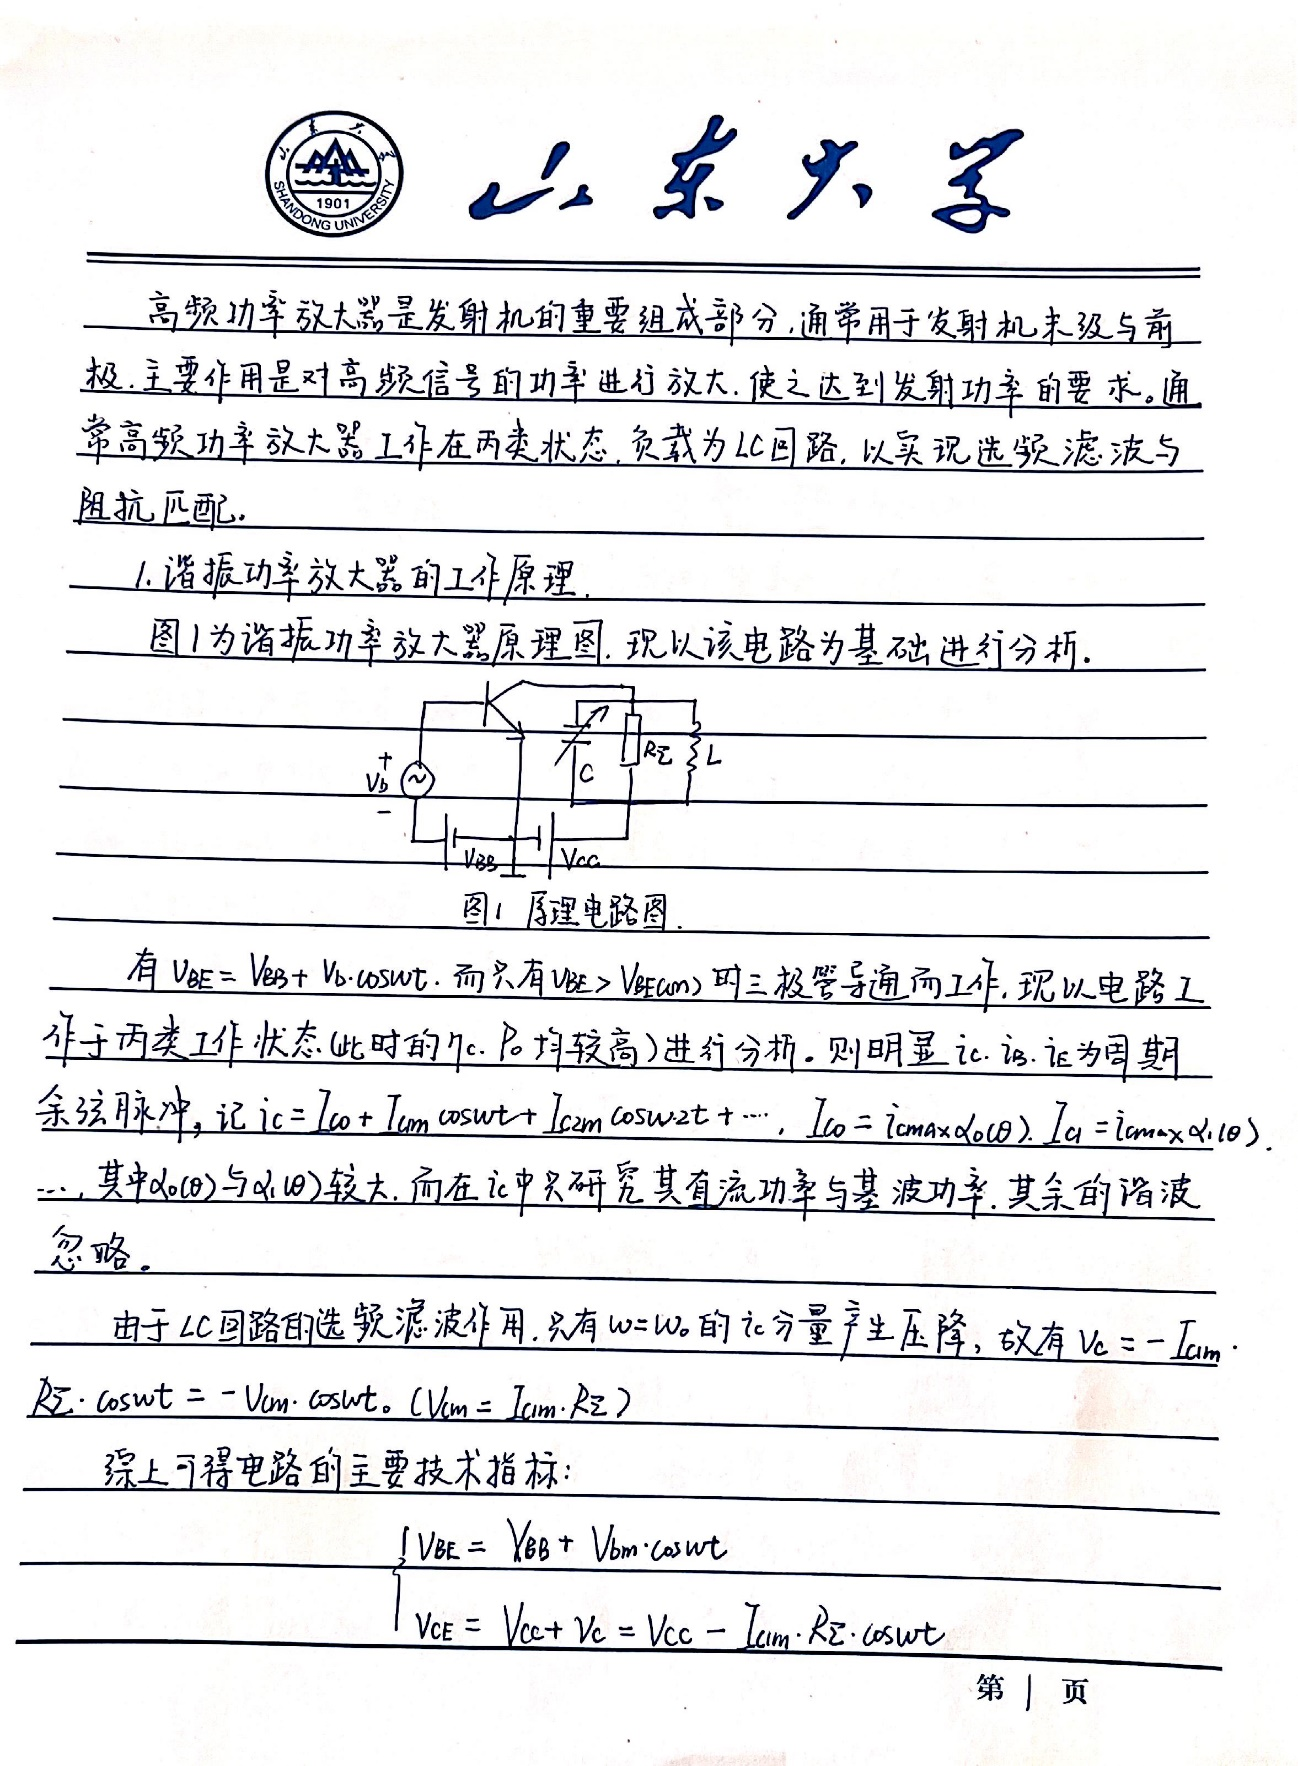 山东大学
山东大学
SHANDONG UNIVERSITY
1901
高频功率放大器是发射机的重要组成部分,通常用于发射机末级与前
极.主要作用是对高频信号的功率进行放大.使之达到发射功率的要求。通
常高频功率放大器工作在丙类状态,负载为LC回路,以实现选频滤波与
阻抗匹配。
1.谐振功率放大器的工作原理.
图1为谐振功率放大器原理图.现以该电路为基础进行分析.
+
Vb
-
C
RΣ
L
VBB
VCC
图1 原理电路图.
有VBE=VBB+Vb·coswt.而只有VBE>VBE(on)时三极管导通而工作.现以电路工
作于丙类工作状态(此时的ηc.Po均较高)进行分析。则明显ic.iB.iE为周期
余弦脉冲,记ic=Ico+Ic1m coswt+Ic2m cosw·2t+…,Ico=icmaxα0(θ).Ic1=icmaxα1(θ).
….其中α0(θ)与α1(θ)较大.而在ic中只研究其直流功率与基波功率.其余的谐波
忽略。
由于LC回路的选频滤波作用.只有w=w0的ic分量产生压降,故有Vc=-Ic1m·
RΣ·coswt=-Vcm·coswt。(Vcm=Ic1m·RΣ)
综上可得电路的主要技术指标:
VBE=VBB+Vbm·coswt
VCE=VCC+Vc=VCC-Ic1m·RΣ·coswt
第1页